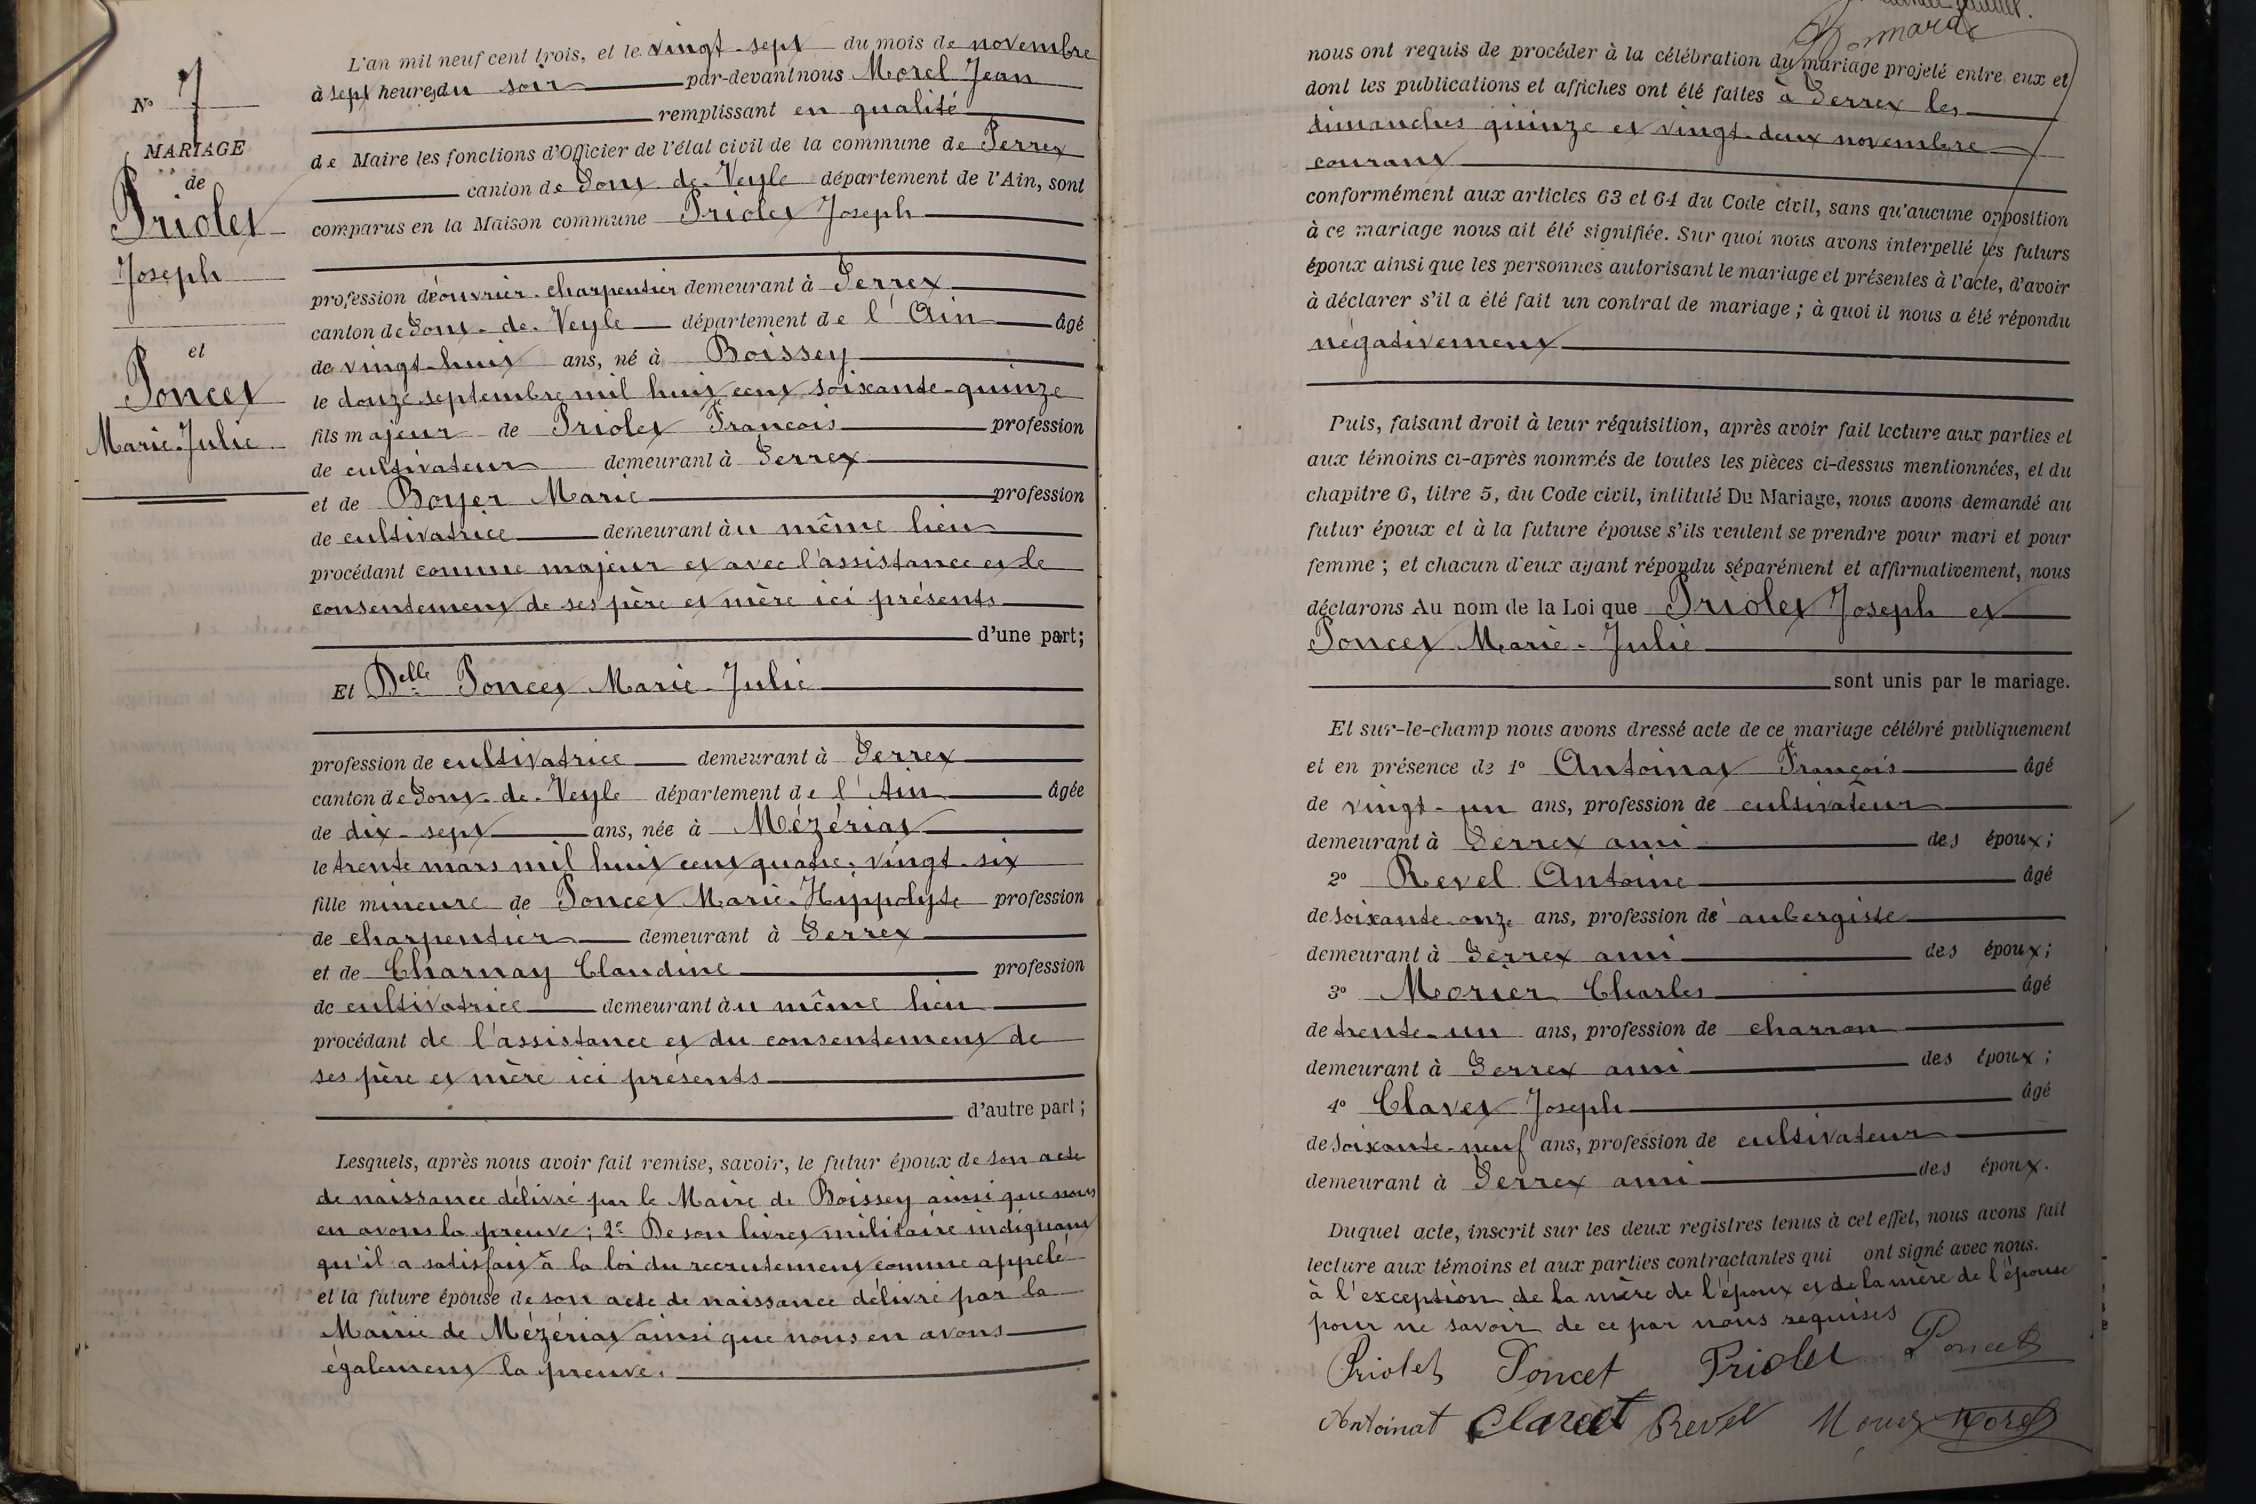 N° 7
MARIAGE
de
Priolet
Joseph
et
Poncet
Marie-Julie
L'an mil neuf cent trois, et le vingt-sept du mois de novembre
à sept heures du soir par-devant nous Morel Jean
remplissant en qualité
de Maire les fonctions d'Officier de l'état civil de la commune de Perrex
canton de Pont-de-Veyle département de l'Ain, sont
comparus en la Maison commune Priolet Joseph
profession d'ouvrier-charpentier demeurant à Perrex
canton de Pont-de-Veyle département de l'Ain âgé
de vingt-huit ans, né à Boissey
le douze septembre mil huit cent soixante-quinze
fils majeur de Priolet François profession
de cultivateur demeurant à Perrex
et de Boyer Marie profession
de cultivatrice demeurant au même lieu
procédant comme majeur et avec l'assistance et le
consentement de ses père et mère ici présents
d'une part;
Et Delle Poncet Marie-Julie
profession de cultivatrice demeurant à Perrex
canton de Pont-de-Veyle département de l'Ain âgée
de dix-sept ans, née à Mézériat
le trente mars mil huit cent quatre-vingt-six
fille mineure de Poncet Marie-Hyppolyte profession
de charpentier demeurant à Perrex
et de Charnay Claudine profession
de cultivatrice demeurant au même lieu
procédant de l'assistance et du consentement de
ses père et mère ici présents
d'autre part;
Lesquels, après nous avoir fait remise, savoir, le futur époux de son acte
de naissance délivré par le Maire de Boissey ainsi que nous
en avons la preuve; 2° De son livret militaire indiquant
qu'il a satisfait à la loi du recrutement comme appelé
et la future épouse de son acte de naissance délivré par la
Mairie de Mézériat ainsi que nous en avons
également la preuve.
nous ont requis de procéder à la célébration du mariage projeté entre eux et
dont les publications et affiches ont été faites à Perrex les
dimanches quinze et vingt-deux novembre
courant
conformément aux articles 63 et 64 du Code civil, sans qu'aucune opposition
à ce mariage nous ait été signifiée. Sur quoi nous avons interpellé les futurs
époux ainsi que les personnes autorisant le mariage et présentes à l'acte, d'avoir
à déclarer s'il a été fait un contrat de mariage; à quoi il nous a été répondu
négativement
Puis, faisant droit à leur réquisition, après avoir fait lecture aux parties et
aux témoins ci-après nommés de toutes les pièces ci-dessus mentionnées, et du
chapitre 6, titre 5, du Code civil, intitulé Du Mariage, nous avons demandé au
futur époux et à la future épouse s'ils veulent se prendre pour mari et pour
femme; et chacun d'eux ayant répondu séparément et affirmativement, nous
déclarons Au nom de la Loi que Priolet Joseph et
Poncet Marie-Julie
sont unis par le mariage.
Et sur-le-champ nous avons dressé acte de ce mariage célébré publiquement
et en présence de 1° Antoinat François âgé
de vingt-un ans, profession de cultivateur
demeurant à Perrex ami des époux;
2° Revel Antoine âgé
de soixante-onze ans, profession d'aubergiste
demeurant à Perrex ami des époux;
3° Morier Charles âgé
de trente-un ans, profession de charron
demeurant à Perrex ami des époux;
4° Clavet Joseph âgé
de soixante-neuf ans, profession de cultivateur
demeurant à Perrex ami des époux.
Duquel acte, inscrit sur les deux registres tenus à cet effet, nous avons fait
lecture aux témoins et aux parties contractantes qui ont signé avec nous.
à l'exception de la mère de l'époux et de la mère de l'épouse
pour ne savoir de ce par nous requises
Priolet Poncet Priolet Poncet
Antoinat Clavet Revel Morier Morel